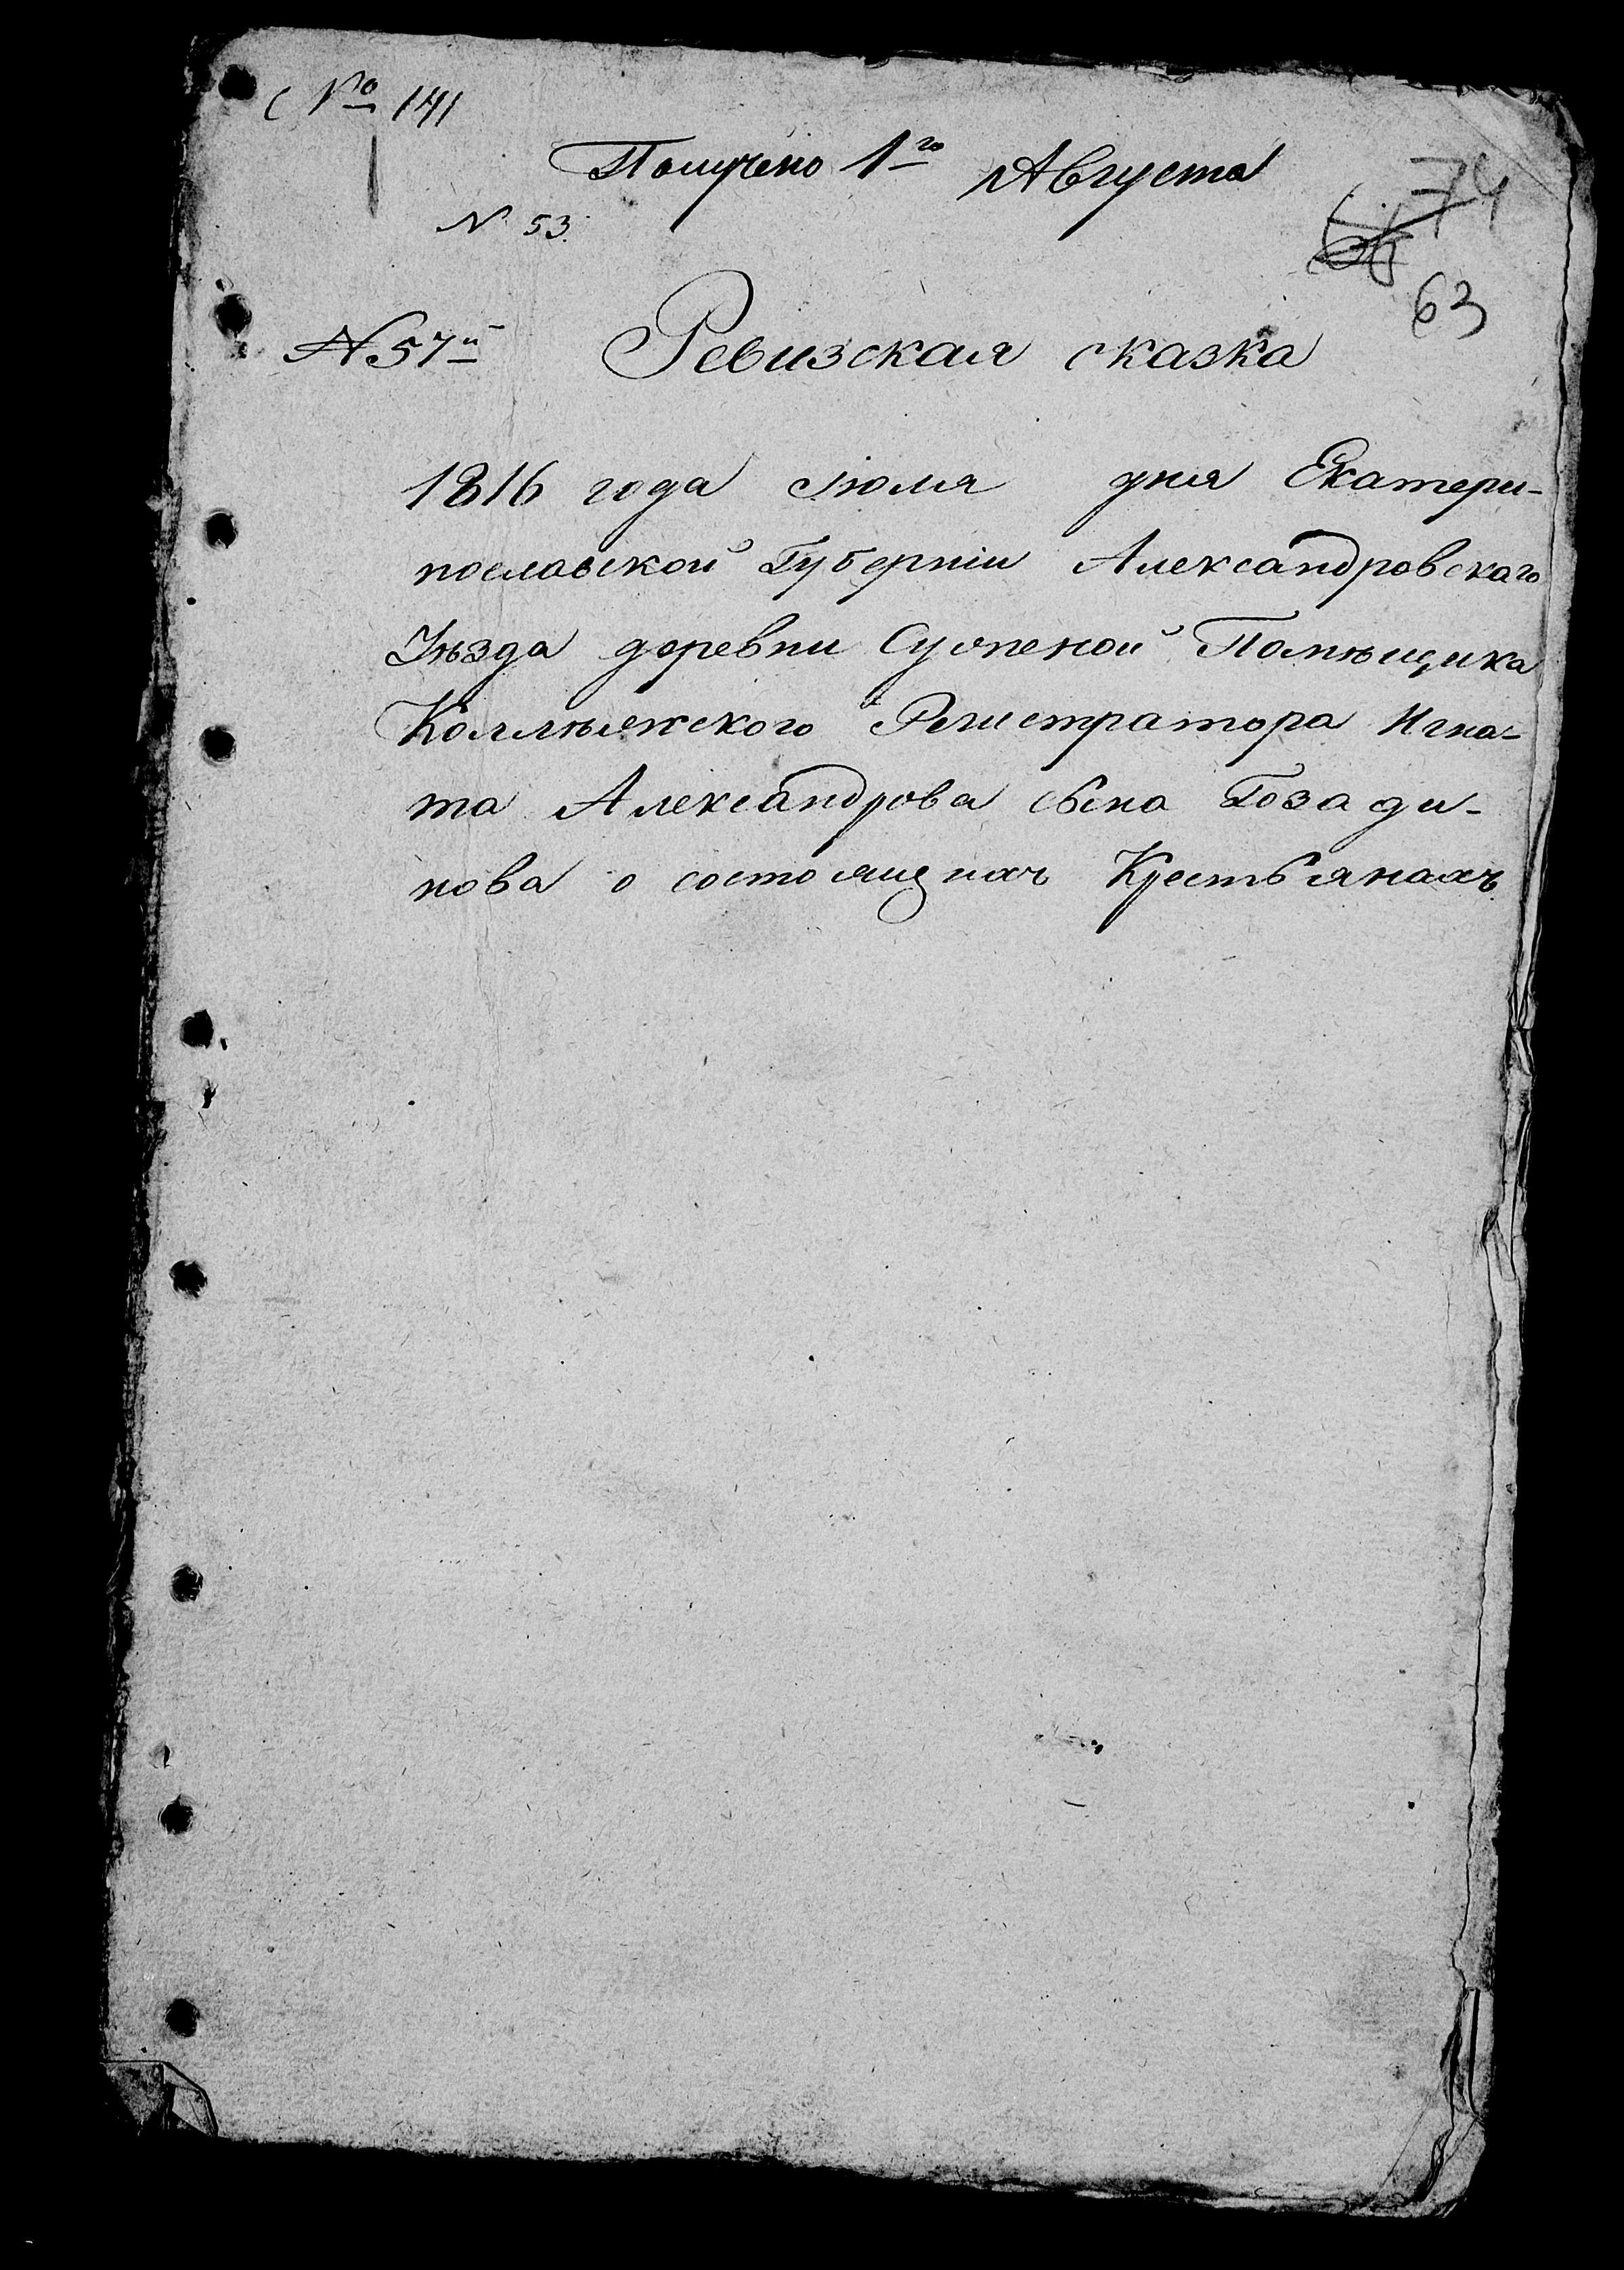 № 141
Получено 1го Августа
74
N 53.
63
N 57й Ревизская сказка
1816 года Июля дня Екатери-
нославской Губерніи Александровскаго
Уѣзда деревни Помѣщика
Коллѣжского Регистратора Игна-
та Александрова сына Гозади-
нова о состоящихъ Крестьянахъ